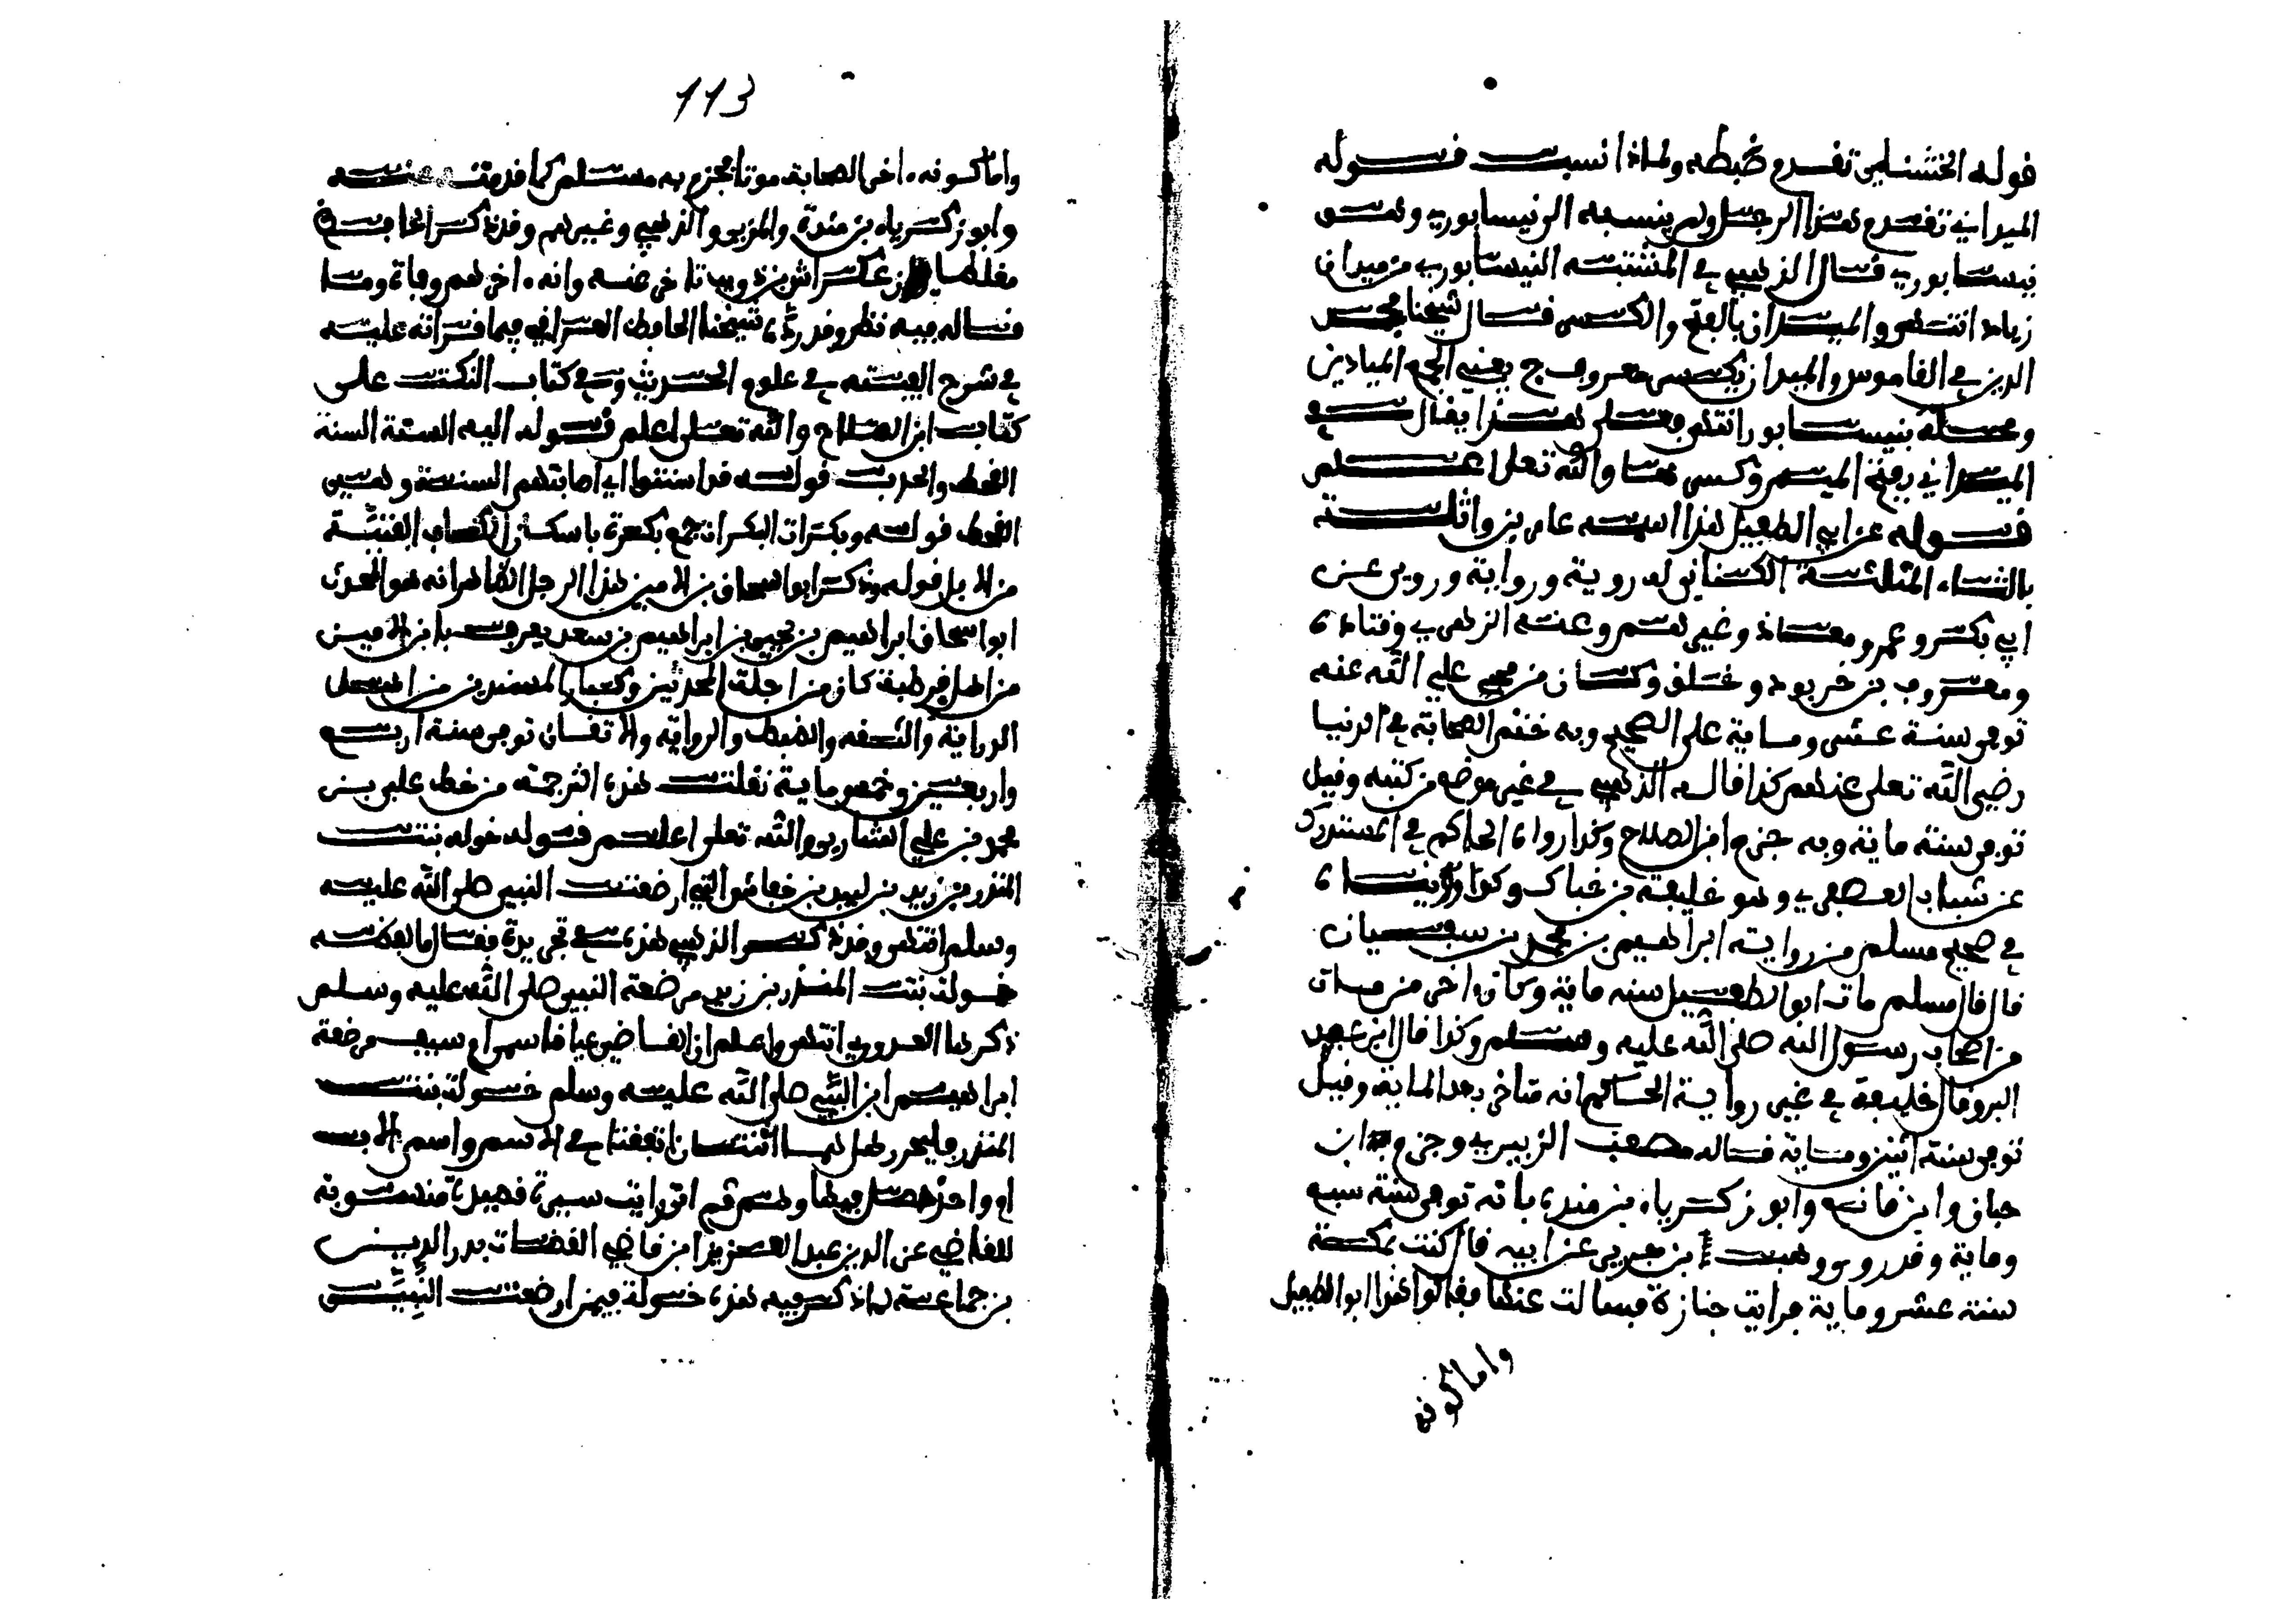 قوله الخشني تقدم ضبطه ولماذا نسب قوله
الميداني تقدم هذا الرجل ولم ينسبه الى نيسابوريه وهو
نيسابوري قال الذهبي في المشتبه النيسابوري من ميدان
زياد انتهى والميدان بالفتح والكسر قال شيخنا مجد
الدين في القاموس والميدان ويكسر معروف ج يعني الجمع الميادين
ومحلة بنيسابور انتهى فعلى هذا يقال في
الميداني بفتح الميم وكسرها والله تعلى اعلم
قوله عن ابي الطفيل هذا اسمه عامر بن واثلة
بالثاء المثلثة الكناني له روية ورواية وروى عن
ابي بكر وعمر ومعاذ وغيرهم وعنه الزهري وقتادة
ومعروف بن خربوذ وخلق وكان من محبي علي الله عنه
توفي سنة عشر وماية على الصحيح وبه ختم الصحابة في الدنيا
رضي الله تعلى عنهم كذا قاله الذهبي في غير موضع من كتبه وقيل
توفي سنة ماية وبه جزم ابن الصلاح وكذا رواه الحاكم في المستدرك
عن شباب العصفري وهو خليفة بن خياط وكذا رويناه
في صحيح مسلم من رواية ابراهيم بن محمد بن سفيان
قال قال مسلم مات ابو الطفيل سنة ماية وكان اخر من مات
من اصحاب رسول الله صلى الله عليه وسلم وكذا قال ابن عبد
البر وقال خليفة في غير رواية الحاكم انه تاخر بعد الماية وقيل
توفي سنة اثنين وماية قاله مصعب الزبيري وجزم ابن
حبان وابن قانع وابو زكرياء بن منده بانه توفي سنة سبع
وماية وقد روى وهب بن جرير عن ابيه قال كنت بمكة
سنة عشر وماية فرايت جنازة فسالت عنها فقالوا هذا ابو الطفيل
واما كونه
113
واما كونه ءاخر الصحابة موتا فجزم به مسلم كما قدمته عنه
وابو زكرياء بن مندة والمزي والذهبي وغيرهم وقد ذكر الحافظ
مغلطاي ان عكراش بن ذويب تاخر عنه وانه ءاخرهم وفاة وما
قاله فيه نظر وقد رده شيخنا الحافظ العراقي فيما قراته عليه
في شرح الفيته في علوم الحديث وفي كتاب النكت على
كتاب ابن الصلاح والله تعلى اعلم قوله اليه السنة السنة
القحط والجدب قوله قد اسنتوا اي اصابتهم السنة وهي
القحط قوله وبكرات البكرات جمع بكرة باسكان الكاف الفتية
من الابل قوله وذكر ابو اسحاق بن الامين هذا الرجل الظاهر انه هو المحدث
ابو اسحاق ابراهيم بن يحيى بن ابراهيم بن سعد يعرف بابن الامين
من اهل قرطبة كان من اجلة المحدثين وكبار المسندين من اهل
الدراية والثقة والضبط والرواية والاتقان توفي سنة اربع
واربعين وخمسماية نقلت هذه الترجمة من خط علي بن
محمد بن علي الشاري والله تعلى اعلم قوله خولة بنت
المنذر بن زيد بن لبيد بن خداش التي ارضعت النبي صلى الله عليه
وسلم انتهى وقد ذكر الذهبي هذه في تجريده فقال ما لفظه
خولة بنت المنذر بن زيد مرضعة النبي صلى الله عليه وسلم
ذكرها العدوي انتهى واعلم ان القاضي عياضا سمى ام سيف مرضعة
ابراهيم ابن النبي صلى الله عليه وسلم خولة بنت
المنذر فليحرر هل هما اثنتان اتفقتا في الاسم واسم الاب
او واحدة حصل فيها وهم ثم اني رايت سيرة قصيرة منسوبة
للقاضي عز الدين عبد العزيز ابن قاضي القضاة بدر الدين
بن جماعة ذكر فيه هذه خولة فيمن ارضعت النبي